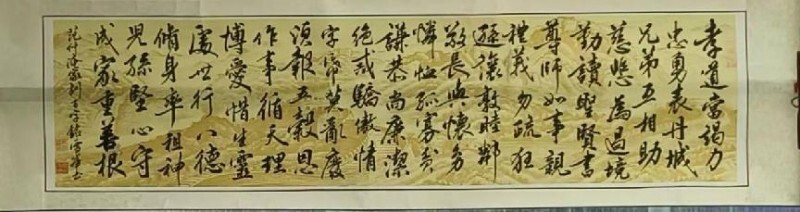 孝道當竭力
忠勇表丹城
兄弟互相助
慈悲為過境
勤讀聖賢書
尊師如事親
禮義勿疏狂
遜讓敦睦鄰
敬長與懷幼
憐恤孤寡貧
謙恭尚廉潔
絕戒驕傲情
字帋莫亂廢
須報五穀恩
作事循天理
博愛惜生靈
處世行八德
脩身率祖神
兒孫堅心守
成家重善根
范仲淹家訓百字銘